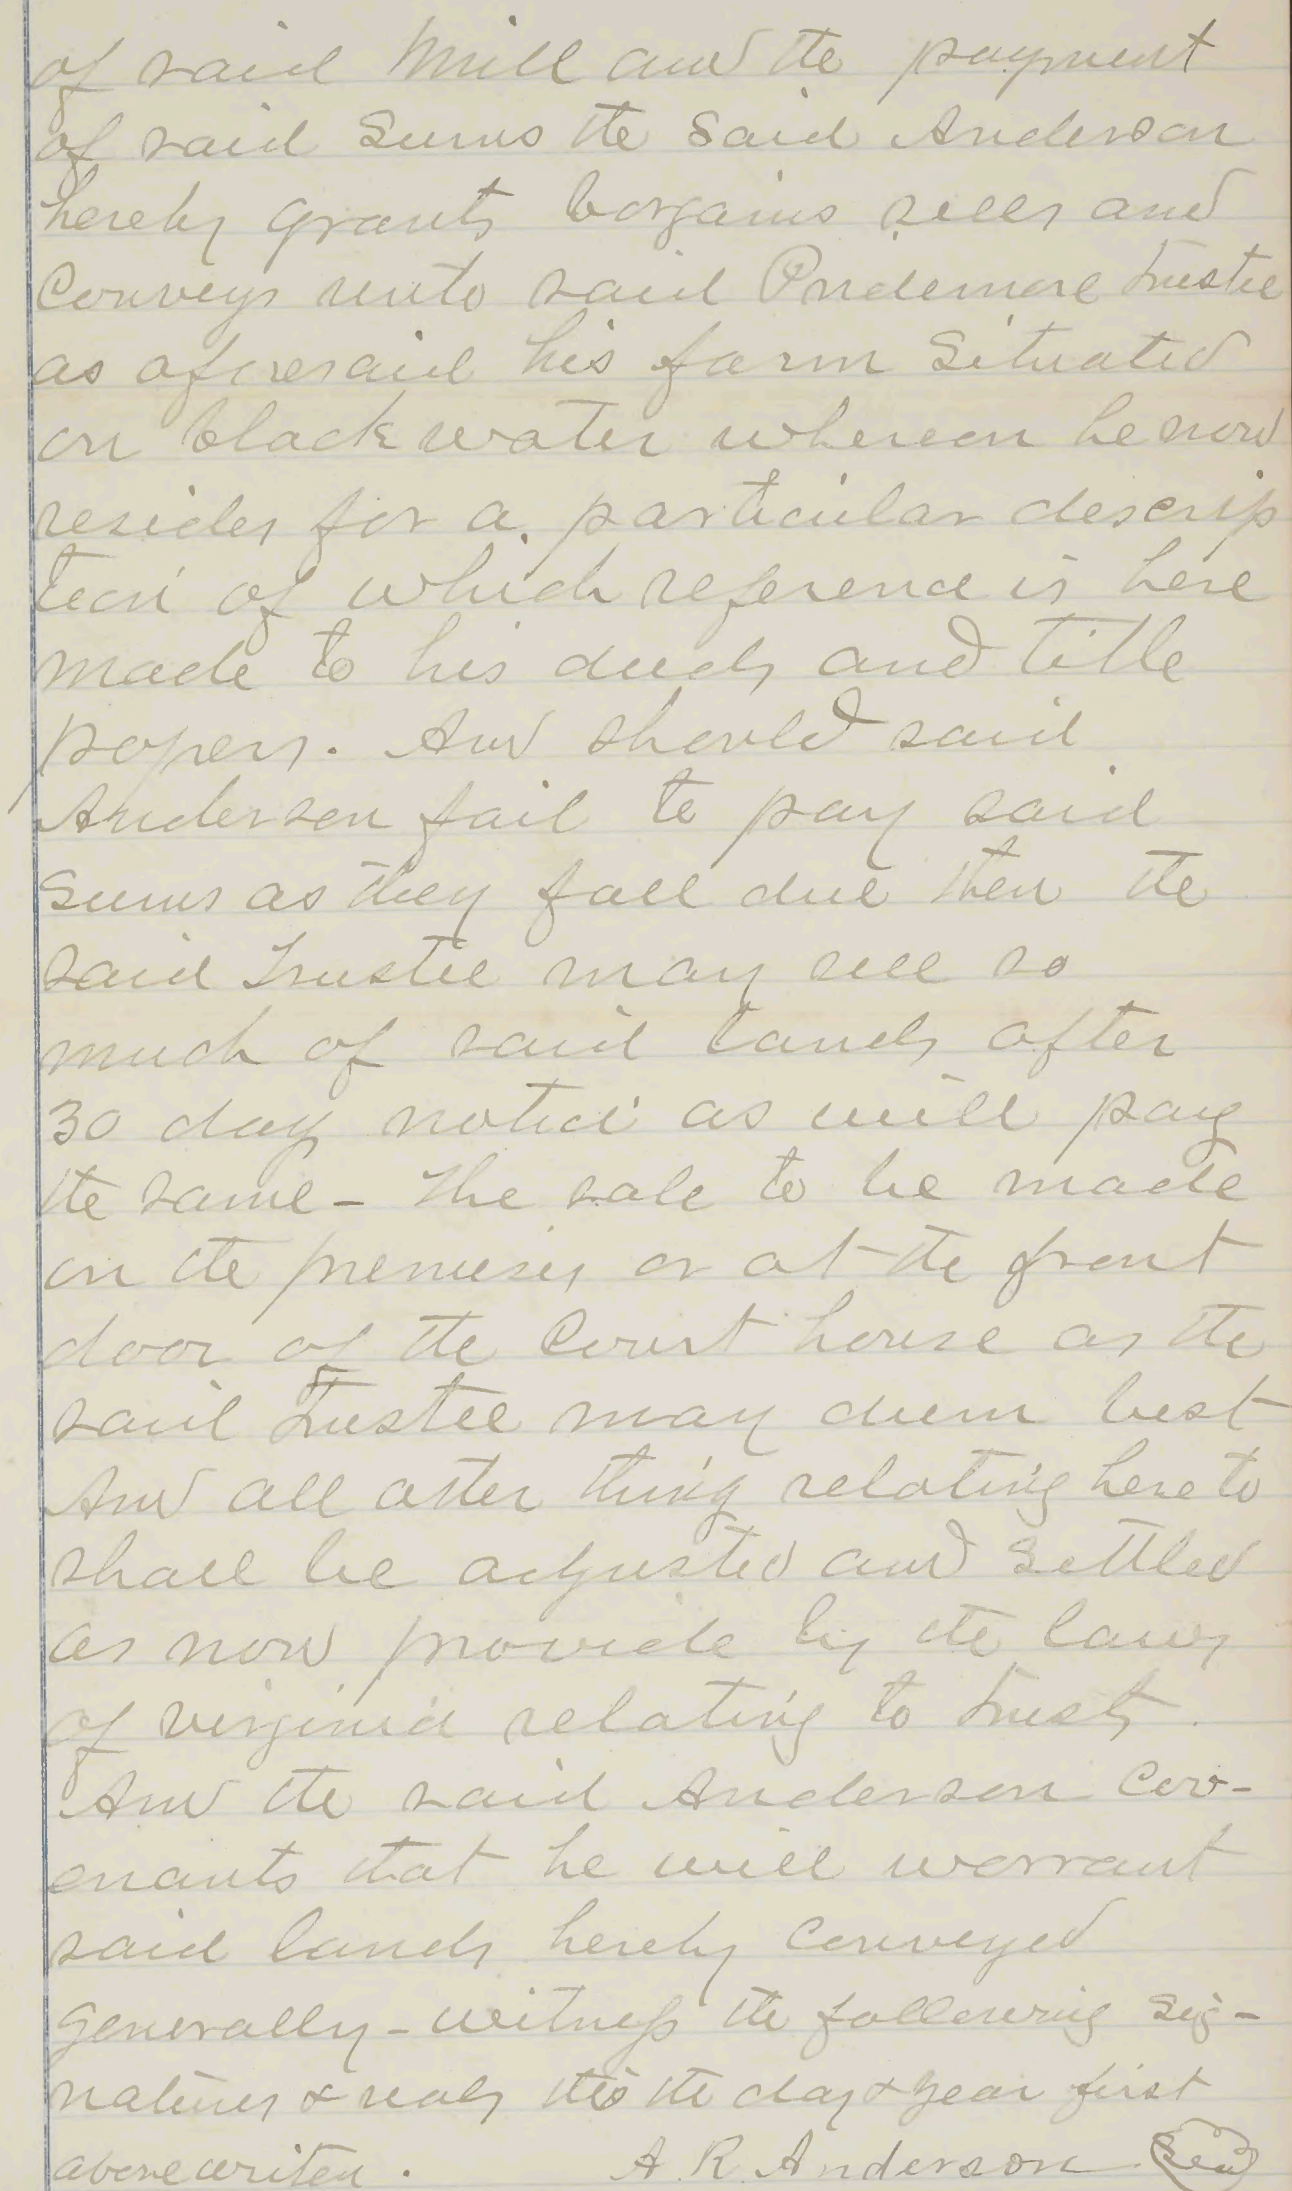 of said Mill and the payment
of said Sums the Said Anderson
hereby grants bargains sells and
Conveys unto said Pridemore trustee
as aforesaid his farm Situated
on black water whereon he now
resides for a particular descrip
tion of which reference is here
made to his deeds and title
papers. And should said
Anderson fail to pay said
Sums as they fall due then the
said Trustee may sell so
much of said lands after
30 days notice as will pay
the same - The sale to be made
on the premises or at the front
door of the Court house as the
said trustee may deem best
And all other things relating here to
shall be adjusted and Settled
as now provide by the laws
of virginia relating to trusts.
And the said Anderson Cov-
enants that he will warrant
said lands hereby Conveyed
generally - witness the following Sig-
natures & seals this the day & year first
above writen. A. R. Anderson Seal